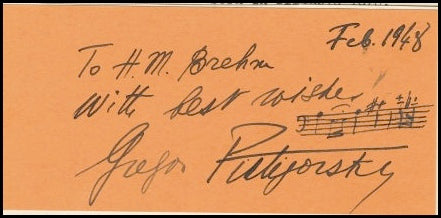 Feb. 1948
To H. M. Brehm
With best wishes
Gregor Piatigorsky